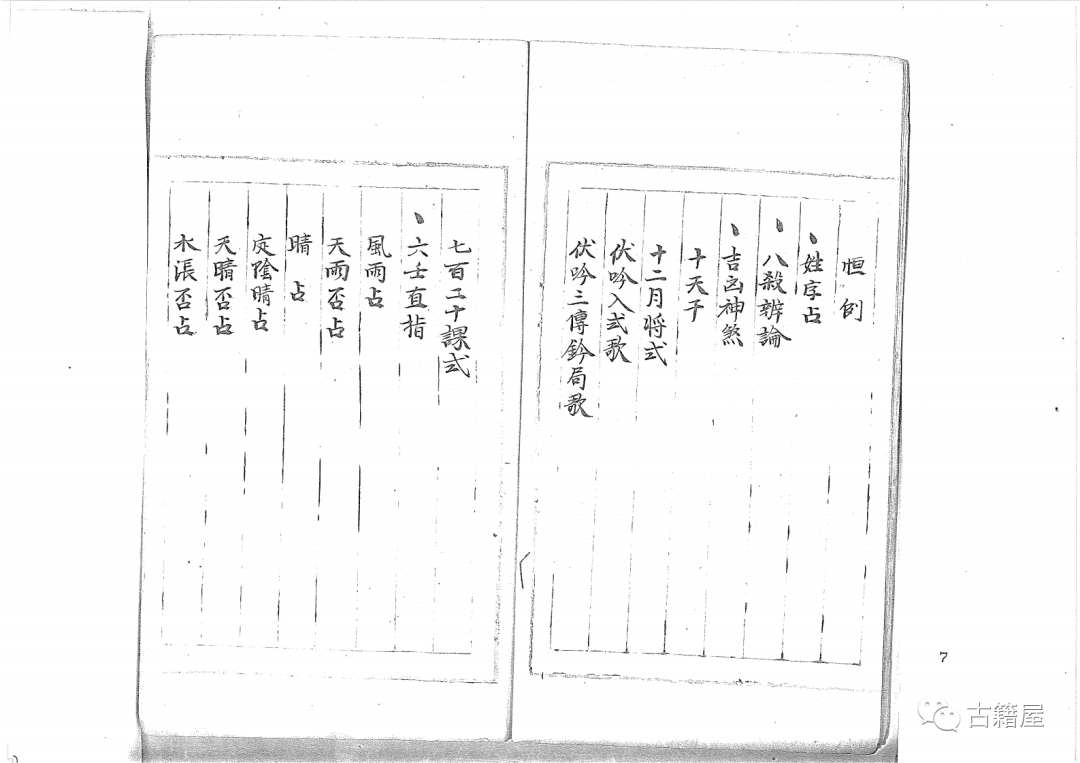 恒例
、姓字占
、八殺辨論
、吉凶神煞
十天子
十二月将式
伏吟入式歌
伏吟三傳鈐局歌
七百二十課式
、六壬直指
風雨占
天雨否占
晴占
定陰晴占
天晴否占
水漲否占
7
古籍屋